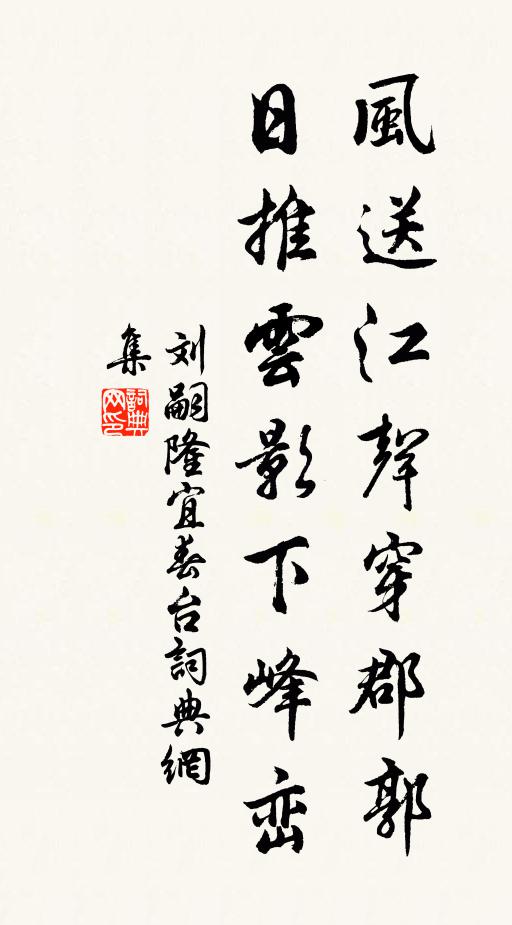 風送江聲穿郡郭
日推雲影下峰峦
刘嗣隆宜春台詞典網
集
詞典
网印